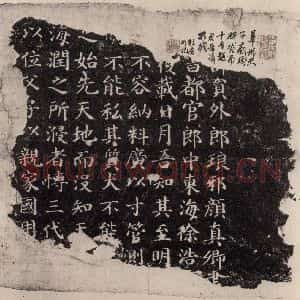 員外郎琅邪顏真卿書
都官郎中東海徐浩
載日月吾知其至明
不容納料廣以寸管則
不能私其質大不能
始先天地而沒知天
海潤之所浸者博三代
以位父子以親家國用